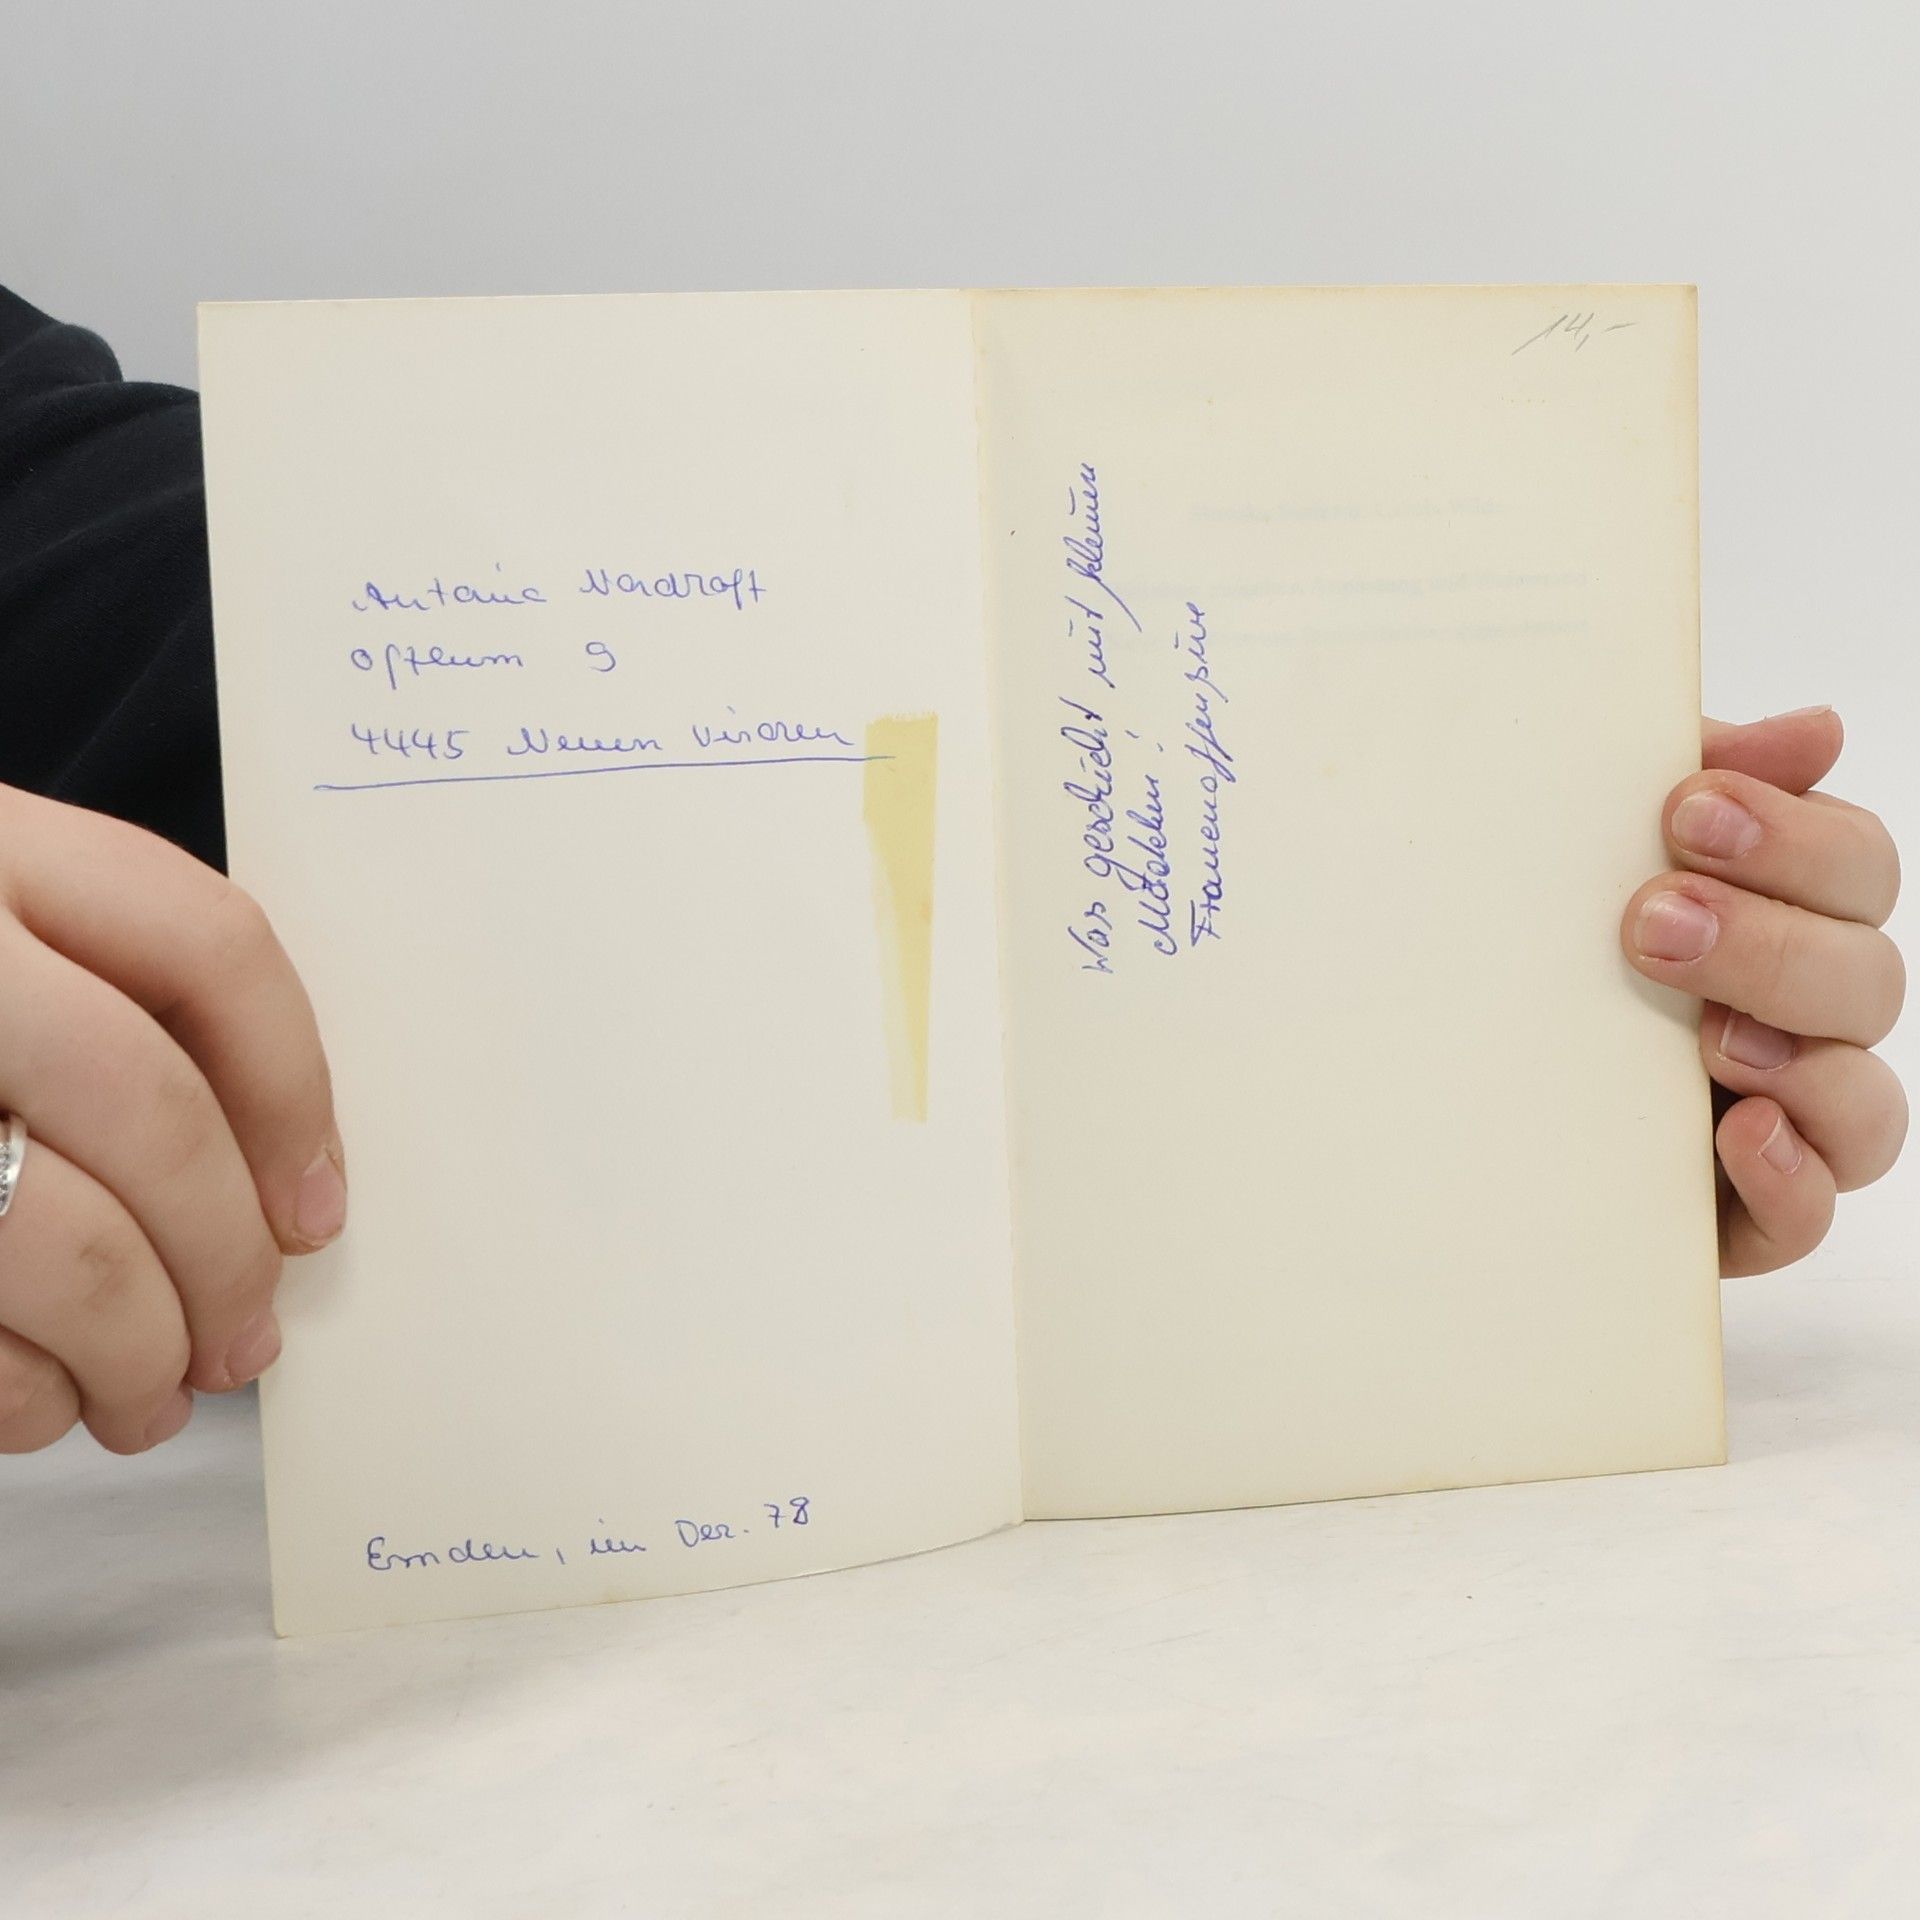 Antonia Nordroft
Ostlum 9
4445 Neuenkirchen
Emden, im Dez. 78
14,-
Was geschieht mit kleinen
Mädchen!
Frauenoffensive